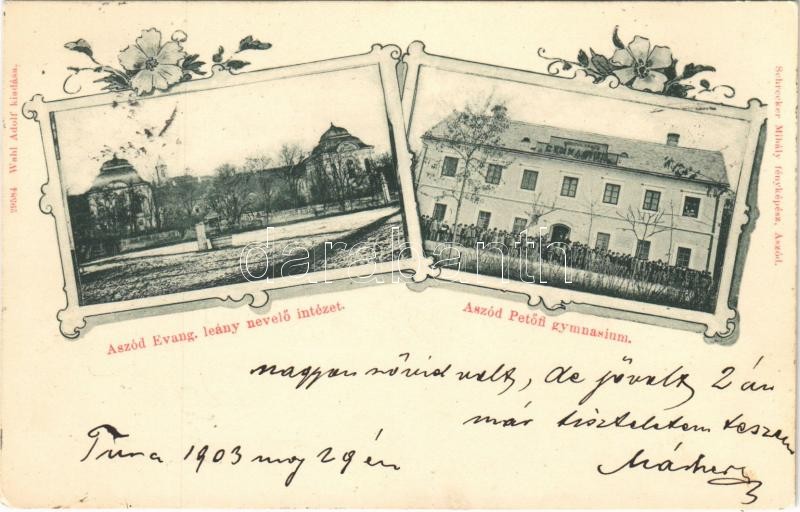 29584 Wahl Adolf kiadása.
Schrecker Mihály fényképész, Aszód.
GYMNASIUM
darabanth
Aszód Evang. leány nevelő intézet.
Aszód Petőfi gymnasium.
nagyon rövid volt, de jövök 2án
már tiszteletem teszem
Tura 1903 máj 29én